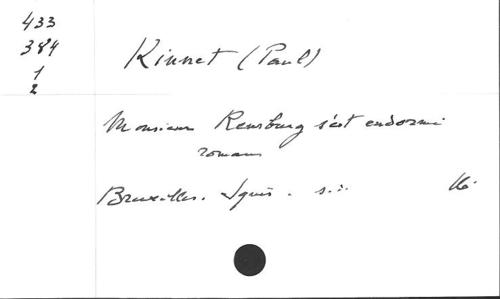 433
384
1
2
Kinnet (Paul)
Monsieur Rensburg s'est endormi
roman
Bruxelles. Ignis. s.